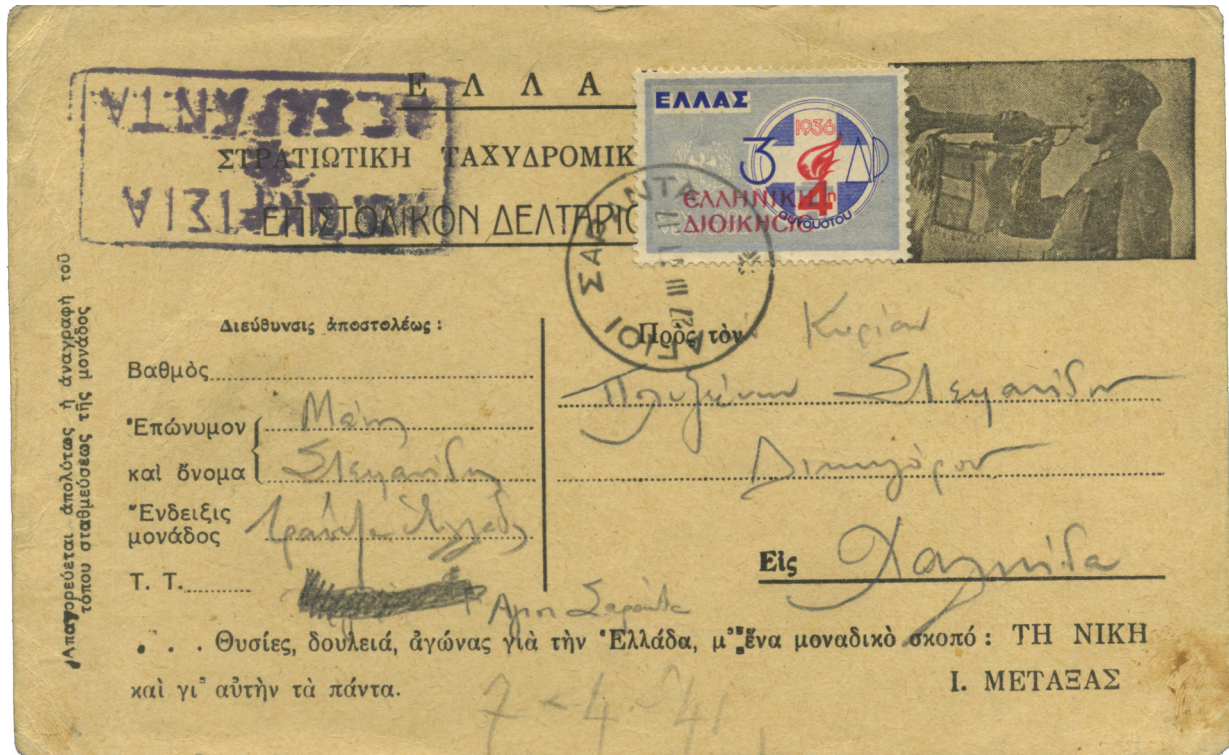 ΕΛΛΑ
ΣΤΡΑΤΙΩΤΙΚΗ ΤΑΧΥΔΡΟΜΙΚ
ΕΠΙΣΤΟΛΙΚΟΝ ΔΕΛΤΑΡΙΟ
ΕΛΛΑΣ
1936
3 ΔΡ
4η
αυγουστου
ΕΛΛΗΝΙΚΗ
ΔΙΟΙΚΗCΙC
ΑΓΙΟΙ ΣΑΡΑΝΤΑ
Ἀπαγορεύεται ἀπολύτως ἡ ἀναγραφὴ τοῦ
τόπου σταθμεύσεως τῆς μονάδος
Διεύθυνσις ἀποστολέως :
Βαθμὸς
Ἐπώνυμον
καὶ ὄνομα
Στεφανίδη
Ἔνδειξις
μονάδος
Τράπεζα Ἑλλάδος
Τ. Τ.
Ἅγιοι Σαράντα
Πρὸς τὸν Κυρίαν
Πολυξένην Στεφανίδου
Δικηγόρον
Εἰς Χαλκίδα
. . . Θυσίες, δουλειά, ἀγώνας γιὰ τὴν Ἑλλάδα, μ' ἕνα μοναδικὸ σκοπό : ΤΗ ΝΙΚΗ
καὶ γι' αὐτὴν τὰ πάντα.
Ι. ΜΕΤΑΞΑΣ
7-4-41